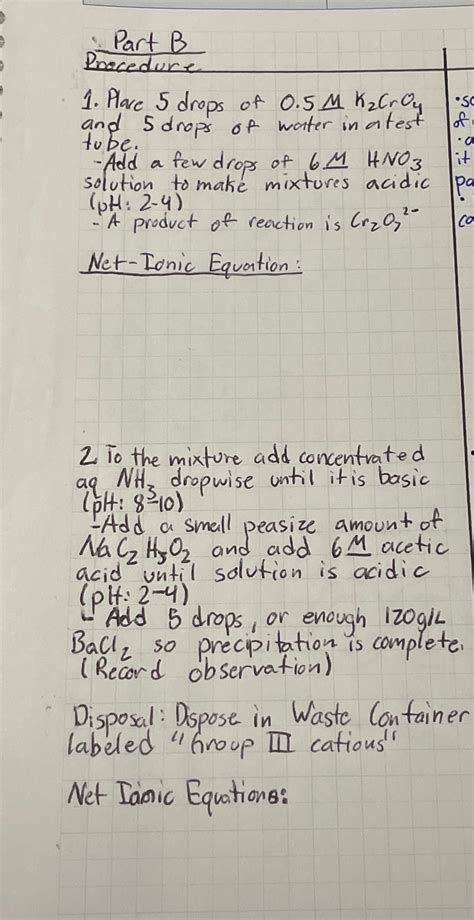 Part B
Procedure
1. Place 5 drops of 0.5 M K₂CrO₄
and 5 drops of water in a test
tube.
-Add a few drops of 6 M HNO₃
solution to make mixtures acidic
(pH: 2-4)
- A product of reaction is Cr₂O₇²⁻
Net-Ionic Equation:
2. To the mixture add concentrated
aq NH₃ dropwise until it is basic
(pH: 8-10)
-Add a small peasize amount of
NaC₂H₃O₂ and add 6 M acetic
acid until solution is acidic
(pH: 2-4)
- Add 5 drops, or enough 120g/L
BaCl₂ so precipitation is complete.
(Record observation)
Disposal: Dispose in Waste Container
labeled "Group III cations"
Net Ionic Equations:
of
it
pa
co